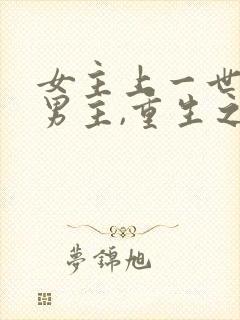 女主上一世
男主,重生之
夢錦旭